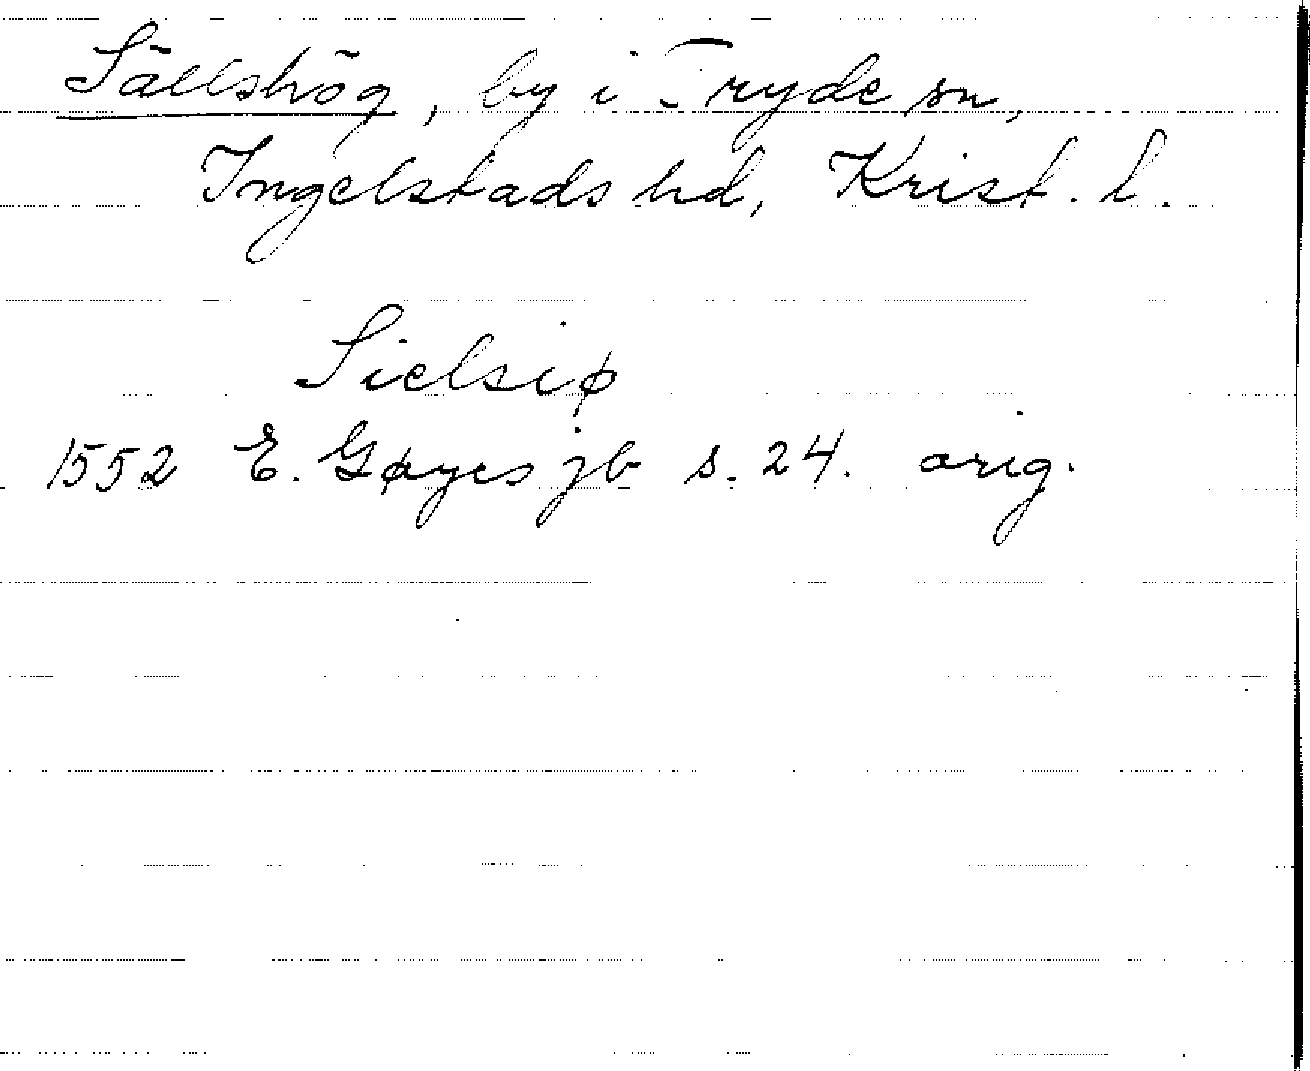 Sällshög, by i Tryde sn,
Ingelstads hd, Krist. l.
Sielsiø
1552 E. Gøyes jb s. 24. orig.